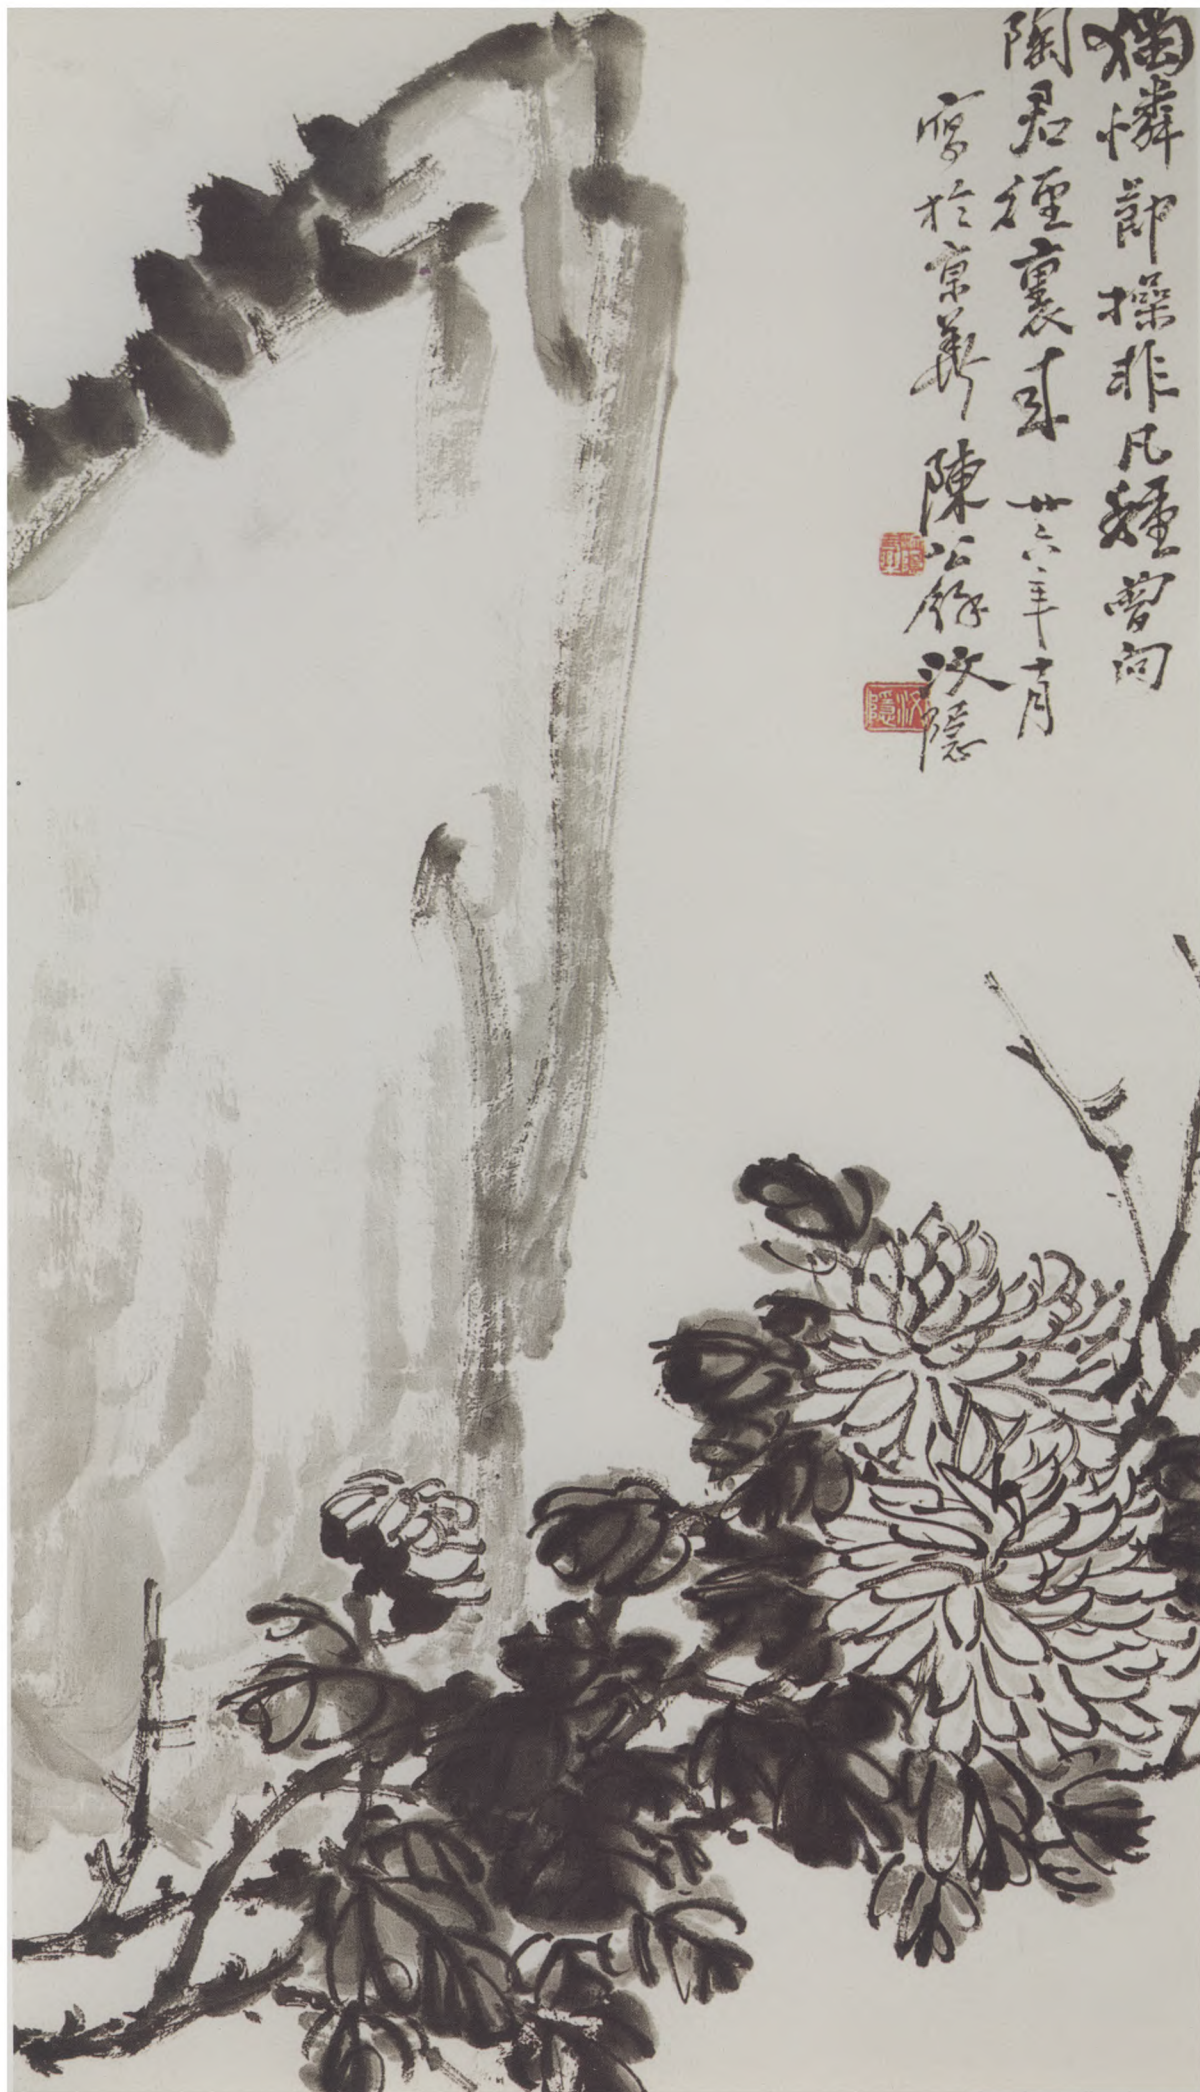 獨憐節操非凡種曾向
陶君徑裏來 廿六年十月
寫於京華 陳公餘汝隱
汝隱